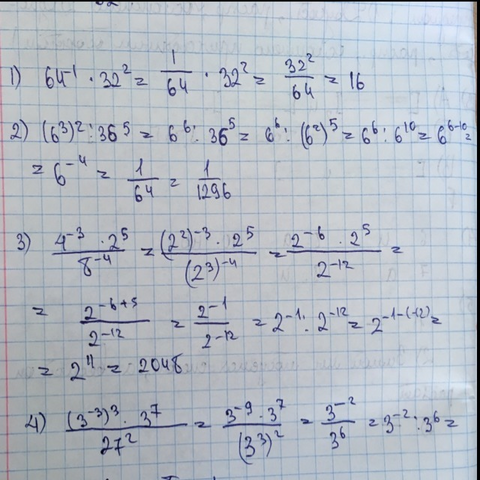 1) 64⁻¹ · 32² = 1/64 · 32² = 32²/64 = 16
2) (6³)² : 36⁵ = 6⁶ : 36⁵ = 6⁶ : (6²)⁵ = 6⁶ : 6¹⁰ = 6⁶⁻¹⁰ =
= 6⁻⁴ = 1/6⁴ = 1/1296
3) (4⁻³ · 2⁵)/8⁻⁴ = ((2²)⁻³ · 2⁵)/(2³)⁻⁴ = (2⁻⁶ · 2⁵)/2⁻¹² =
= 2⁻⁶⁺⁵/2⁻¹² = 2⁻¹/2⁻¹² = 2⁻¹ : 2⁻¹² = 2⁻¹⁻⁽⁻¹²⁾ =
= 2¹¹ = 2048
4) ((3⁻³)³ · 3⁷)/27² = (3⁻⁹ · 3⁷)/(3³)² = 3⁻²/3⁶ = 3⁻² : 3⁶ =